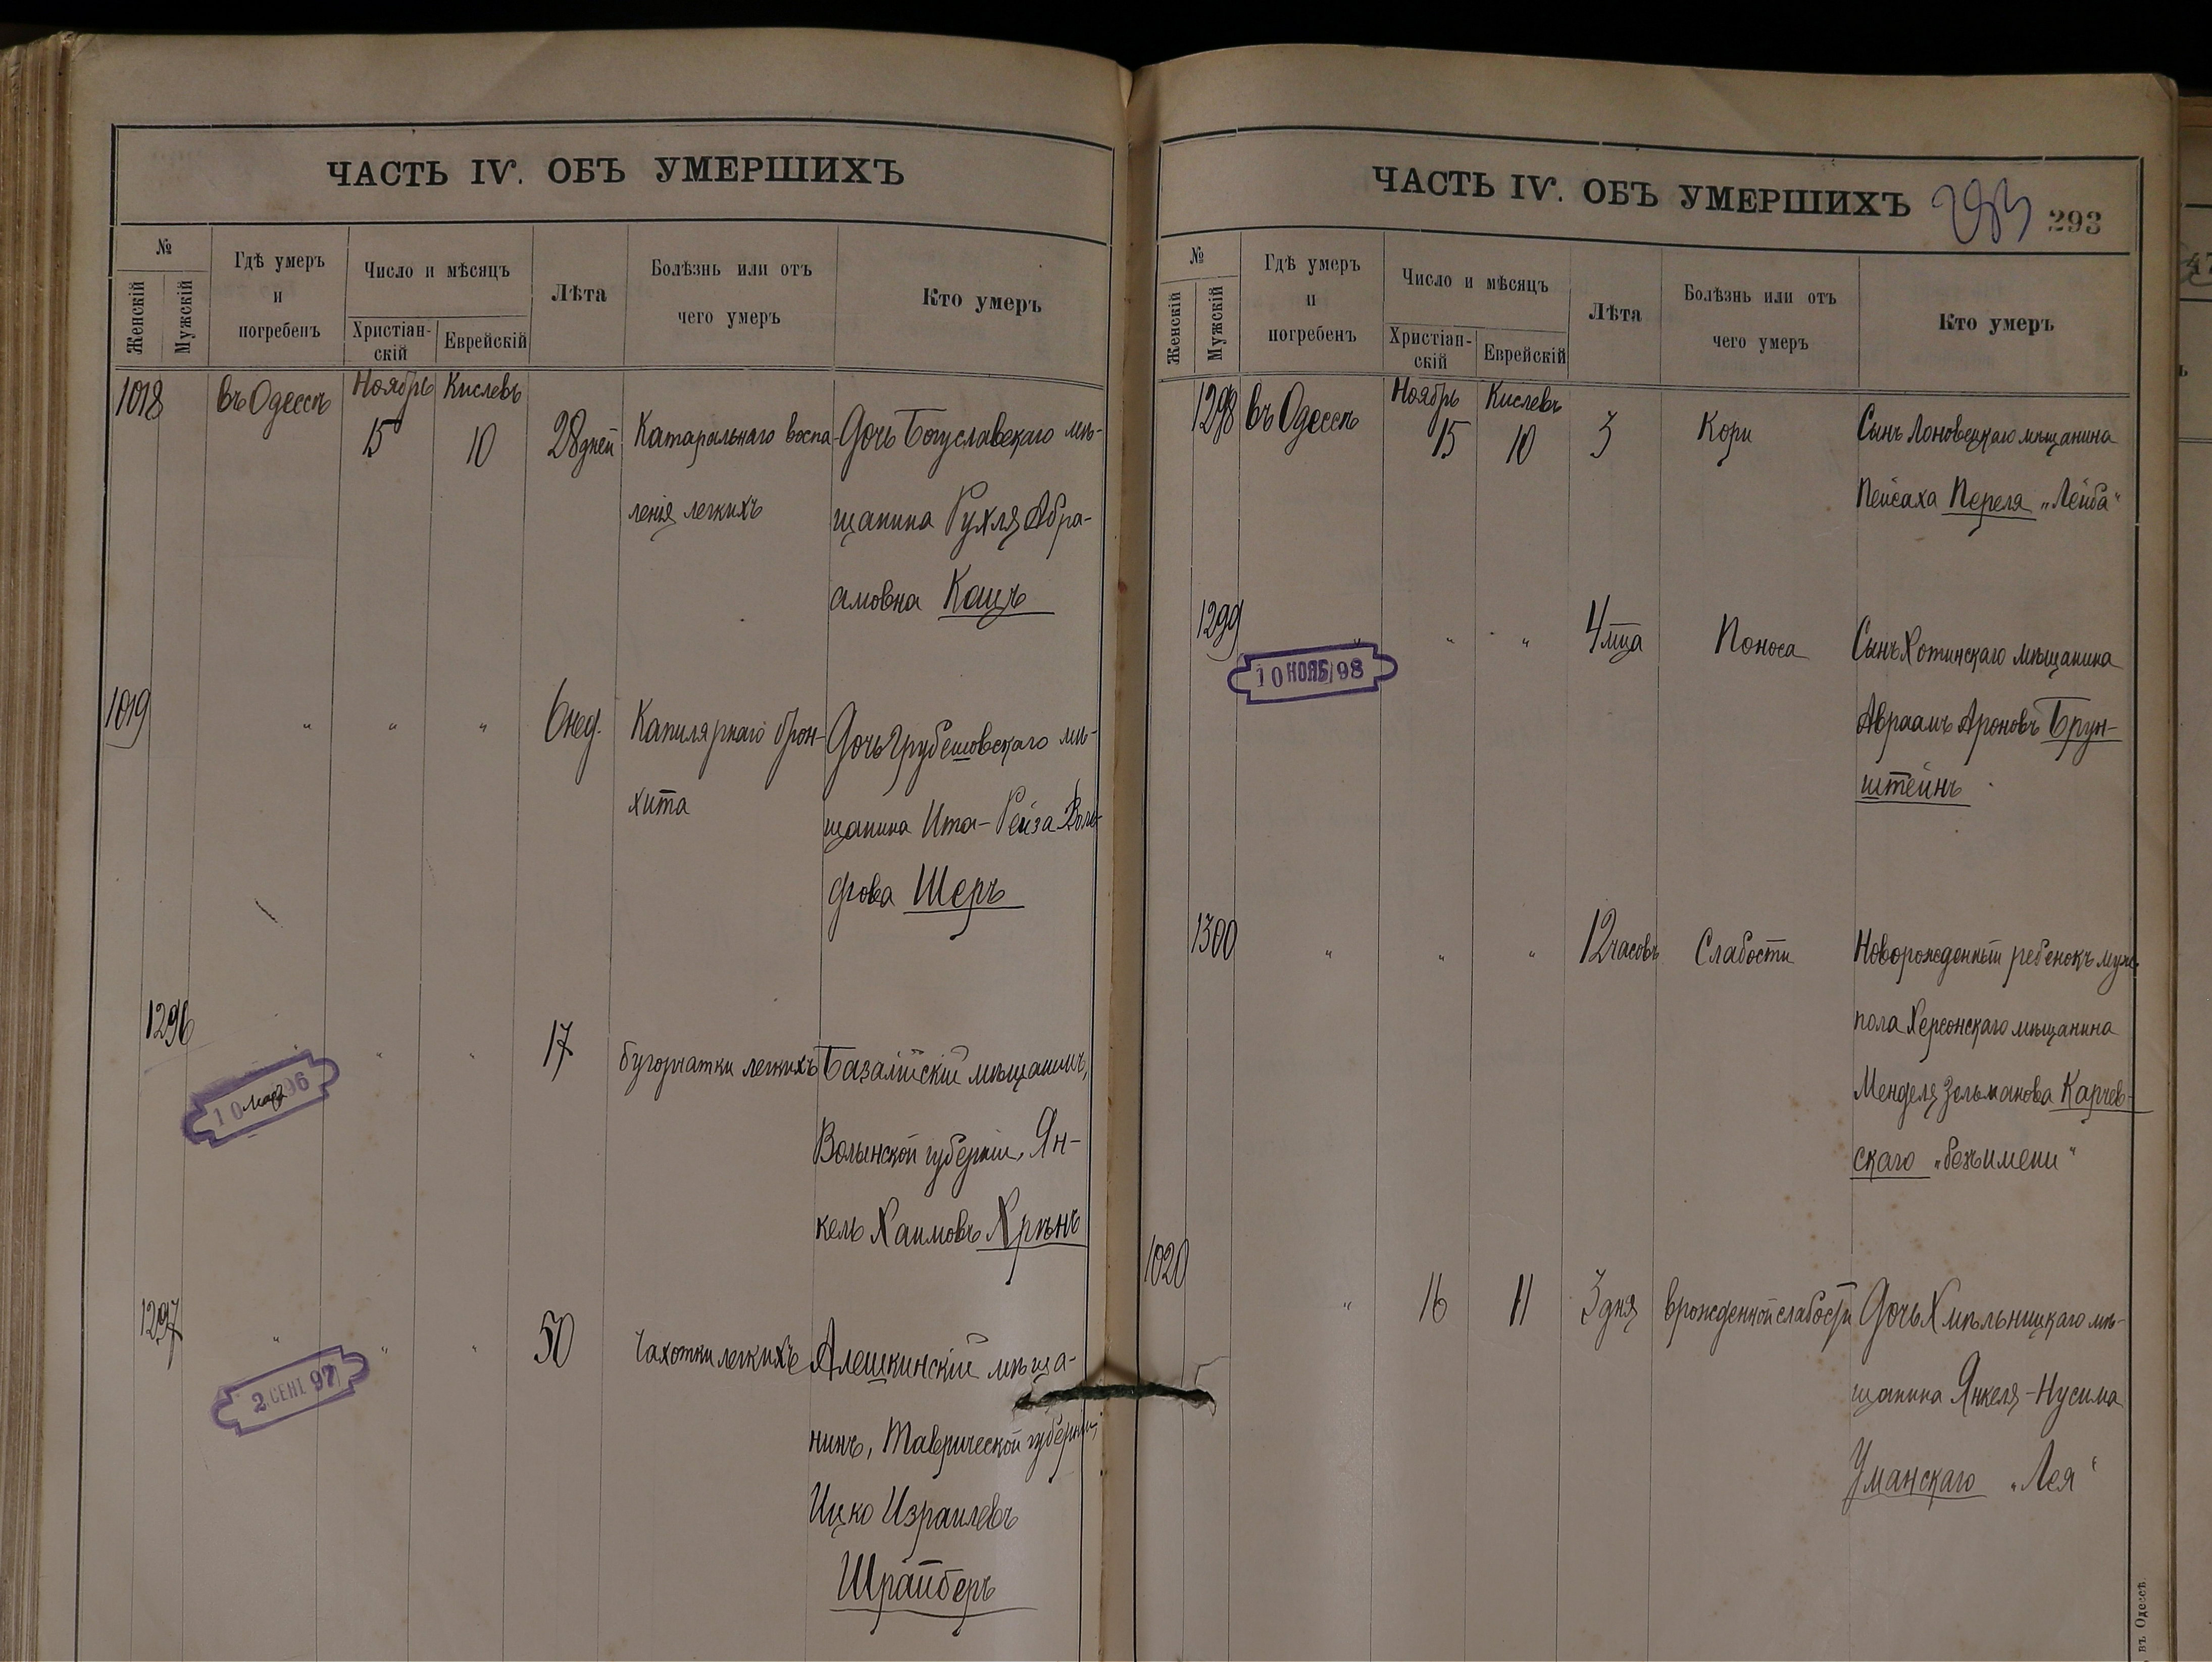 ЧАСТЬ IV. ОБЪ УМЕРШИХЪ
№
Женскій
Мужскій
Гдѣ умеръ
и
погребенъ
Число и мѣсяцъ
Христіан-
скій
Еврейскій
Лѣта
Болѣзнь или отъ
чего умеръ
Кто умеръ
1018 въ Одессѣ Ноябрь Кислевъ
15 10 28 дней Катаральнаго воспа- Дочь Богуславскаго мѣ-
ленія легкихъ щанина Рухля Абра-
амовна Кацъ
1019 " " " 6 нед. Капилярнаго брон- Дочь Грубешовскаго мѣ-
хита щанина Ита-Рейза Воль-
фова Шеръ
1296 " " 17 бугорчатки легкихъ Базалійскій мѣщанинъ,
10 мар 96
Волынской губерніи, Ян-
кель Хаимовъ Хрѣнъ
1297 " " " 50 Чахотки легкихъ Алешкинскій мѣща-
2 СЕНТ 97
нинъ, Таврической губерніи,
Ицко Израилевъ
Шрайберъ
ЧАСТЬ IV. ОБЪ УМЕРШИХЪ 293 293
№
Женскій
Мужскій
Гдѣ умеръ
и
погребенъ
Число и мѣсяцъ
Христіан-
скій
Еврейскій
Лѣта
Болѣзнь или отъ
чего умеръ
Кто умеръ
1298 въ Одессѣ Ноябрь Кислевъ
15 10 3 Кори Сынъ Лоновецкаго мѣщанина
Пейсаха Переля „Лейба“
1299 " " " 4 мца Поноса Сынъ Хотинскаго мѣщанина
10 НОЯБ 98
Авраамъ Ароновъ Брун-
штейнъ
1300 " " " 12 часовъ Слабости Новорожденный ребенокъ муж.
пола Херсонскаго мѣщанина
Менделя Зельманова Карчев-
скаго „безъ имени“
1020 " 16 11 3 дня врожденной слабости Дочь Хмѣльницкаго мѣ-
щанина Янкеля-Нусима
Уманскаго „Лея“
въ Одессѣ.